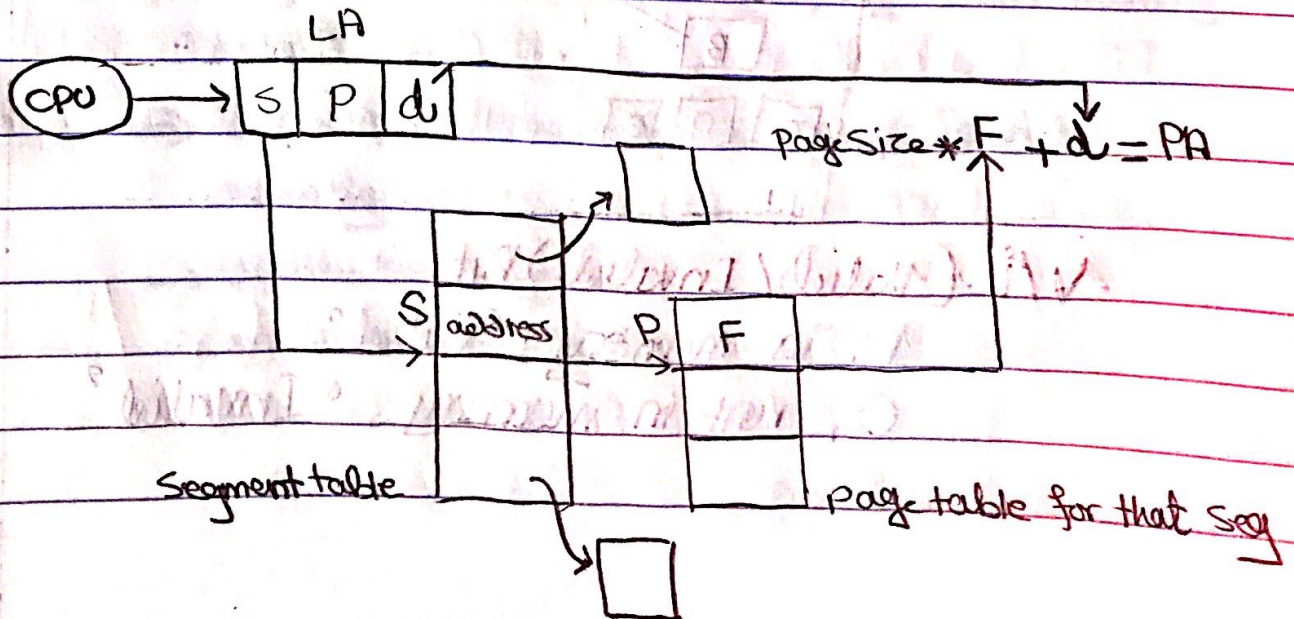 LA
CPU S P d
Page Size * F + d = PA
S address P F
Segment table
page table for that seg